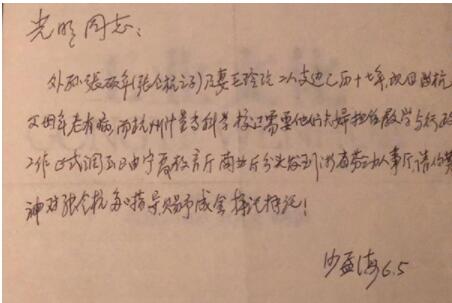 光明同志：
外孙张砺年(张令杭之子)及妻王玲玲二人支边已历十七年，现因留杭
父母年老有病，而杭州计量专科学校正需要他们夫妇担任教学与行政
工作，正式调函已由宁夏教育厅商业厅分头发到浙省劳动人事厅，请你费
神对张令杭多指导，赐予成全，专托持托！
沙孟海 6.5